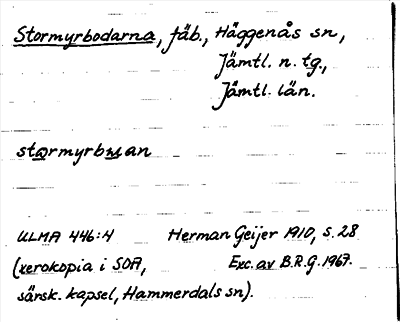 Stormyrbodarna, fäb., Häggenås sn,
Jämtl. n. tg.,
Jämtl. län.
stormyrbuan
ULMA 446:4 Herman Geijer 1910, s. 28
(xerokopia i SOA, Exc. av B.R.G. 1967.
särsk. kapsel, Hammerdals sn).